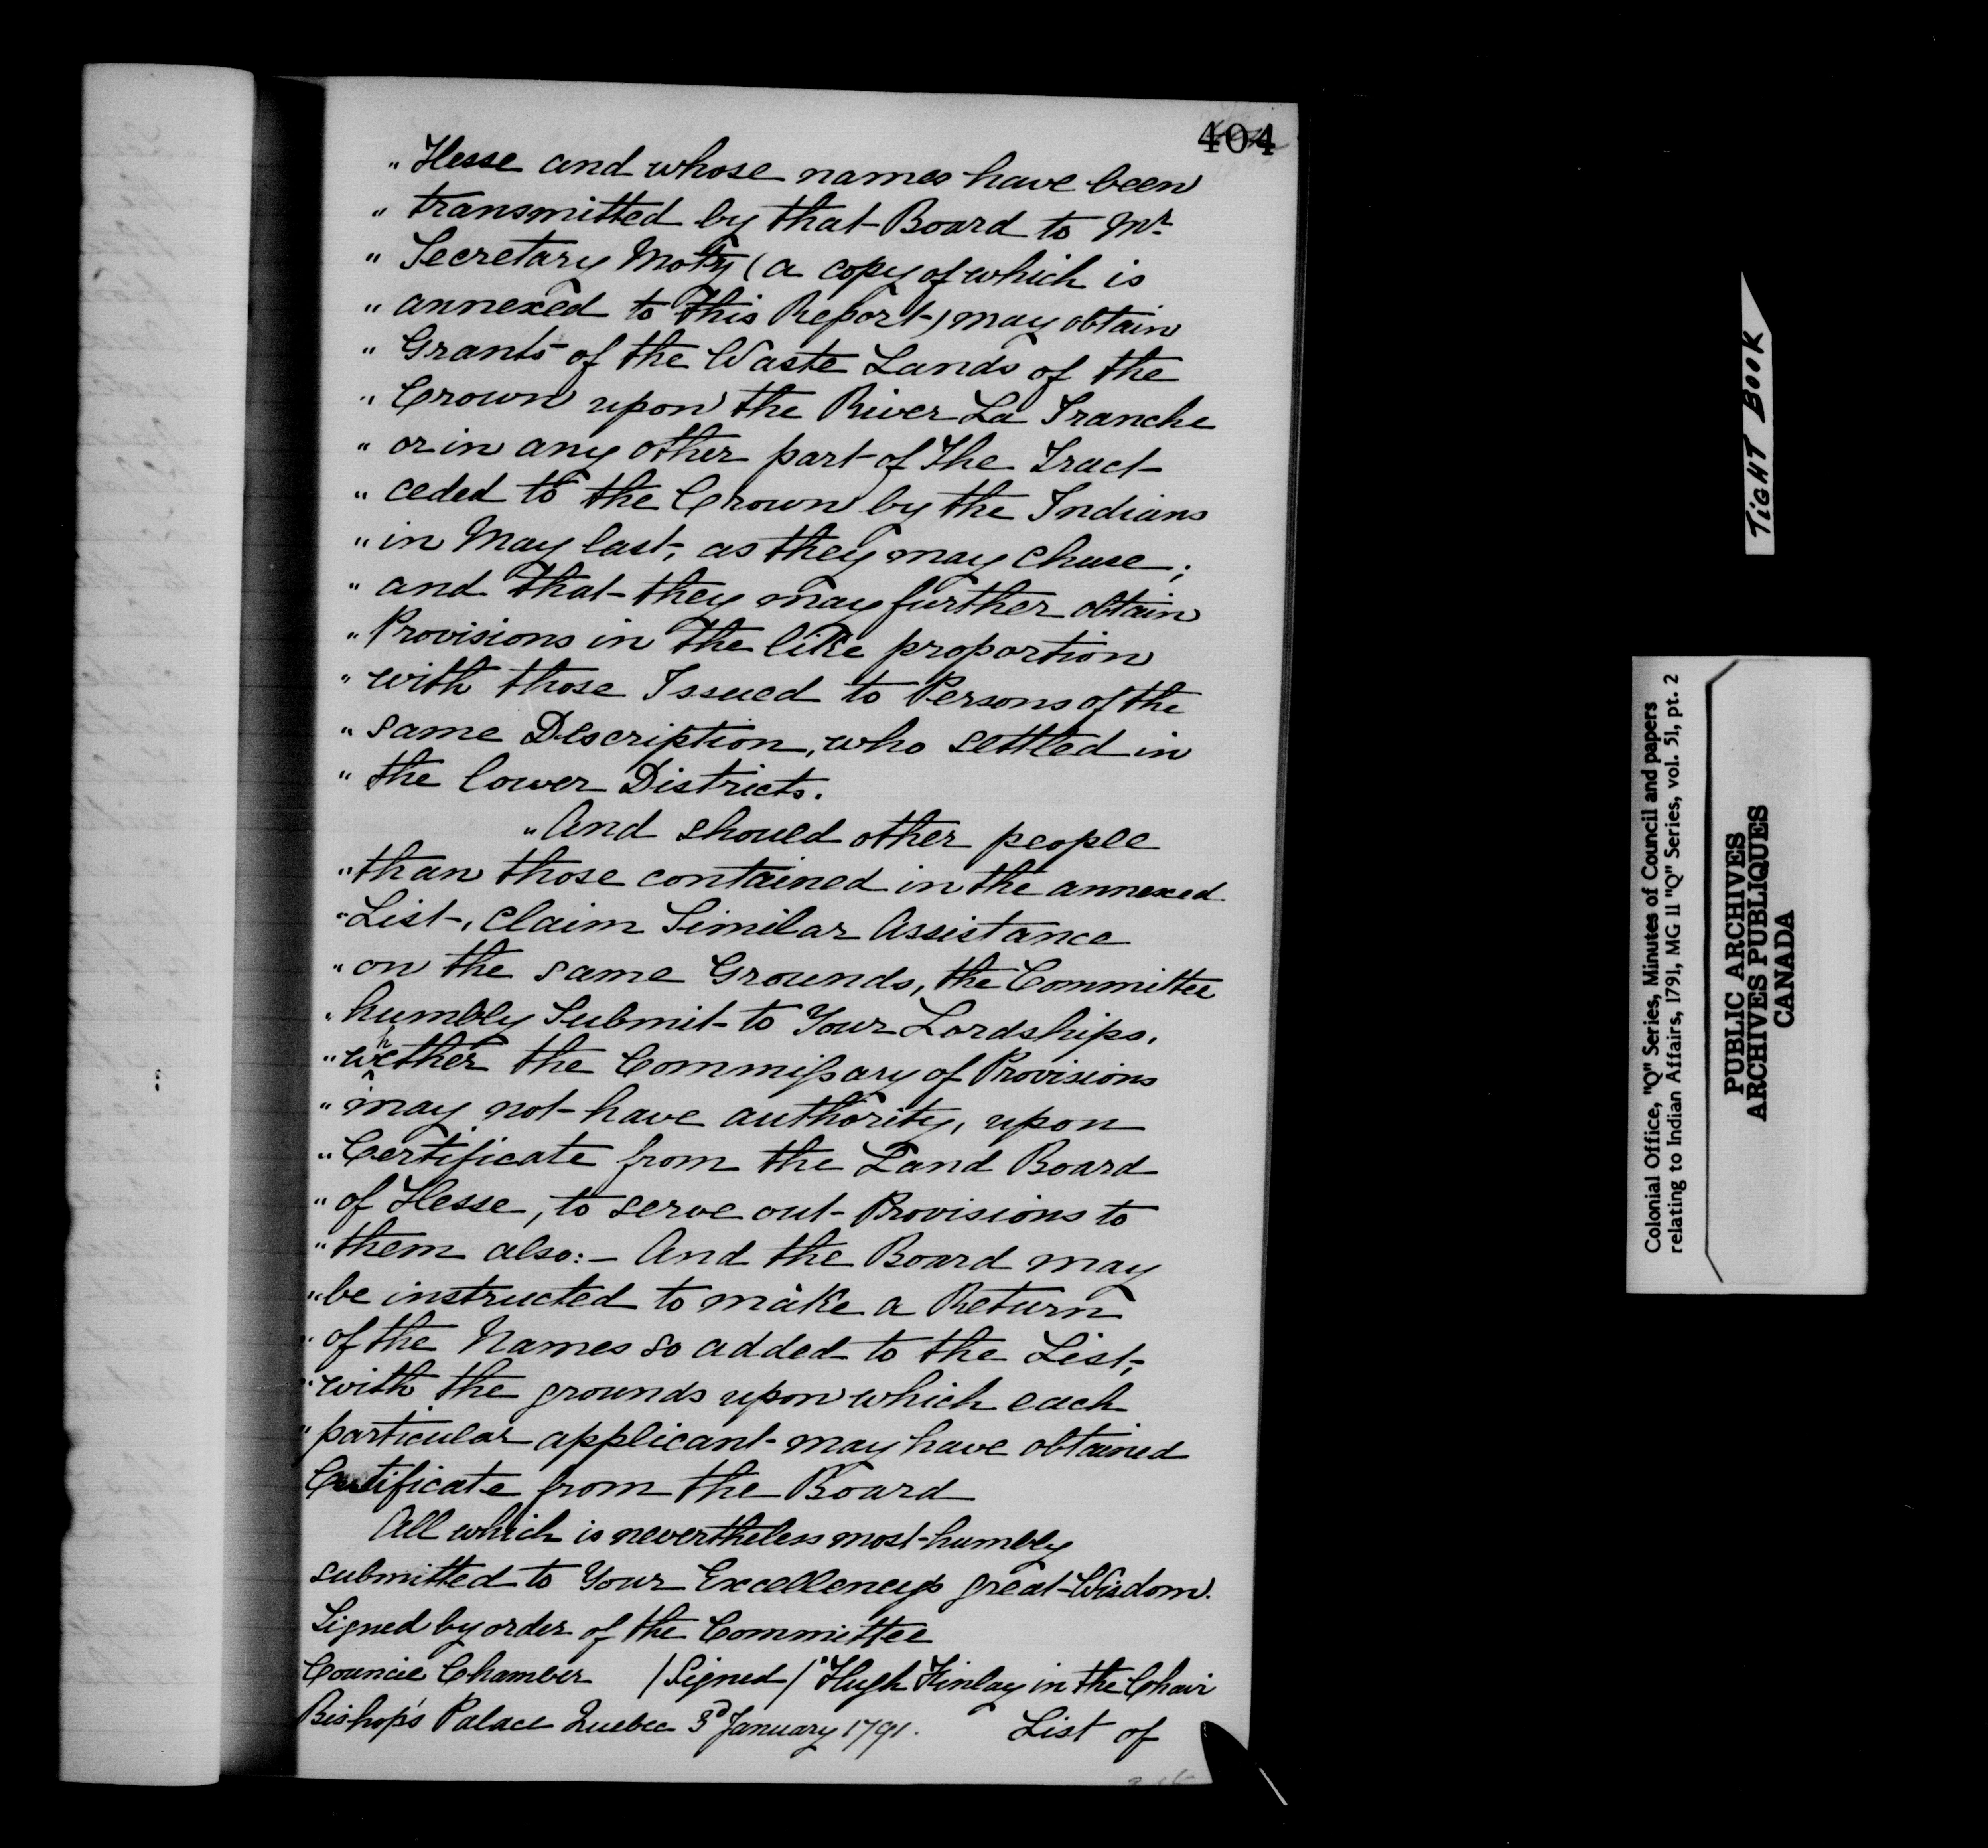 404
" Hesse and whose names have been
" transmitted by that Board to Mr.
" Secretary Motz (a copy of which is
" annexed to this Report) may obtain
" Grants of the Waste Lands of the
" Crown upon the River La Tranche
" or in any other part of the Tract
" ceded to the Crown by the Indians
" in May last, as they may chuse;
" and that they may further obtain
" Provisions in the like proportion
" with those Issued to Persons of the
" same Description, who settled in
" the lower Districts.
" And should other people
" than those contained in the annexed
" List, claim Similar Assistance
" on the same Grounds, the Committee
" humbly Submit to Your Lordships,
" whether the Commissary of Provisions
" may not have authority, upon
" Certificate from the Land Board
" of Hesse, to serve out Provisions to
" them also:- And the Board may
" be instructed to make a Return
" of the Names so added to the List,
" with the grounds upon which each
" particular applicant may have obtained
Certificate from the Board
All which is nevertheless most humbly
submitted to Your Excellency's great Wisdom.
Signed by order of the Committee
Council Chamber /Signed/ "Hugh Finlay in the Chair
Bishop's Palace Quebec 3d January 1791.
List of
TIGHT BOOK
Colonial Office, "Q" Series, Minutes of Council and papers
relating to Indian Affairs, 1791, MG 11 "Q" Series, vol. 51, pt. 2
PUBLIC ARCHIVES
ARCHIVES PUBLIQUES
CANADA